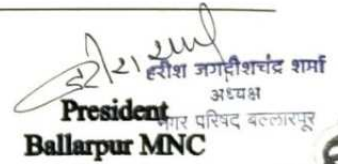 हरीश जगदीशचंद्र शर्मा
अध्यक्ष
President
नगर परिषद बल्लारपूर
Ballarpur MNC